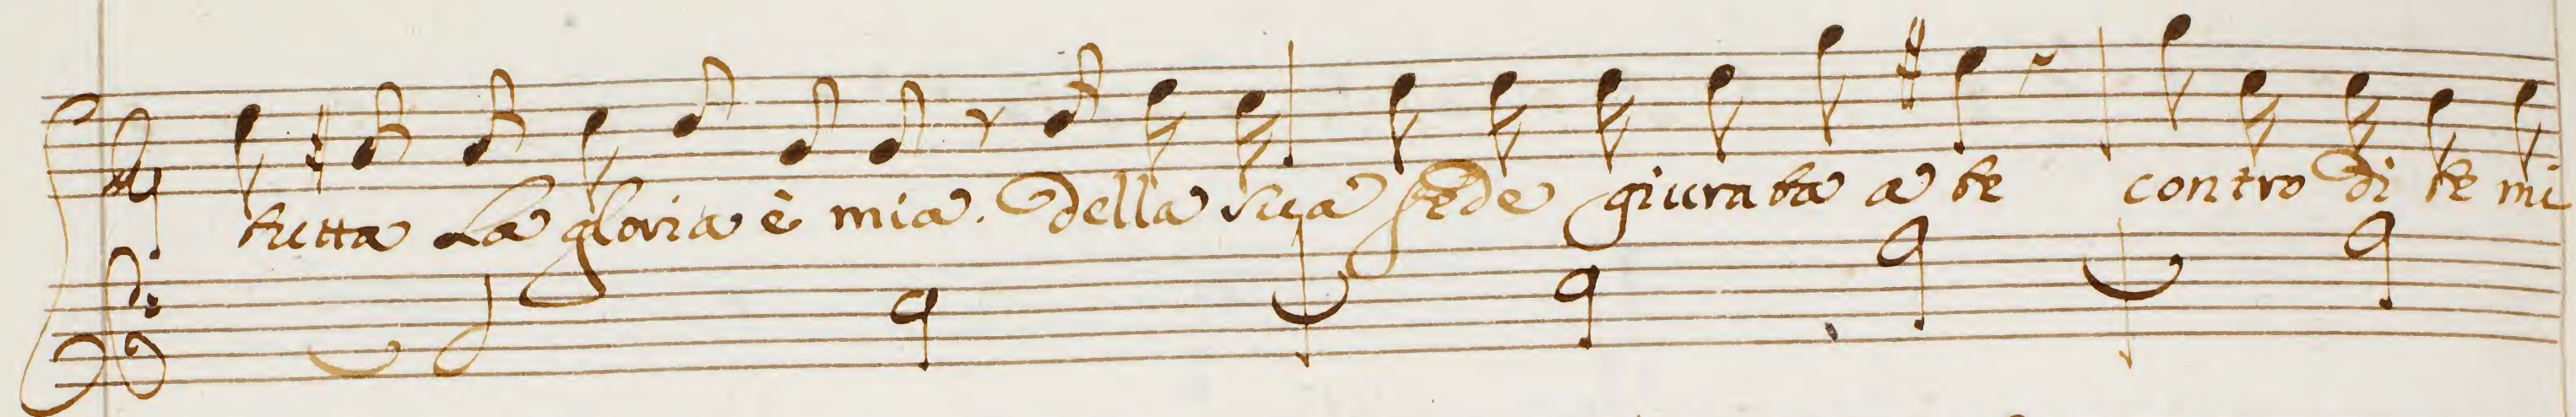 tutta La gloria è mia. Della sua fede giurata a te contro di te mi